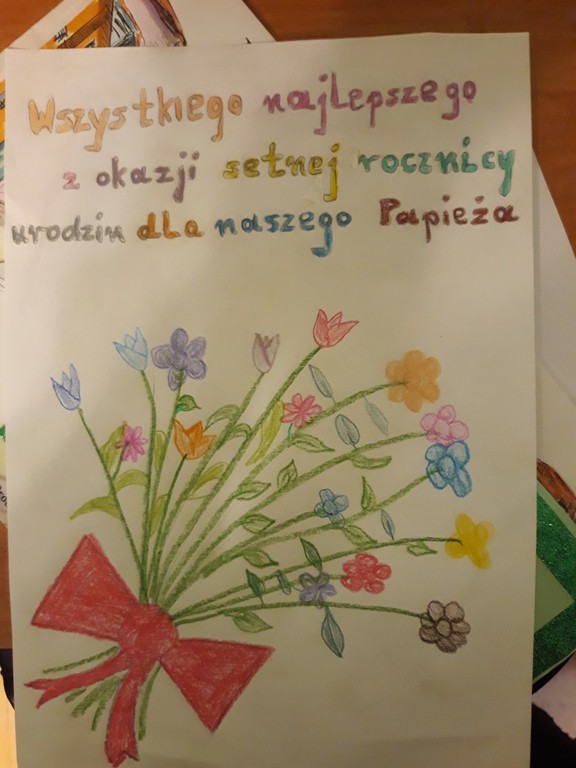 Wszystkiego najlepszego
z okazji setnej rocznicy
urodzin dla naszego Papieża